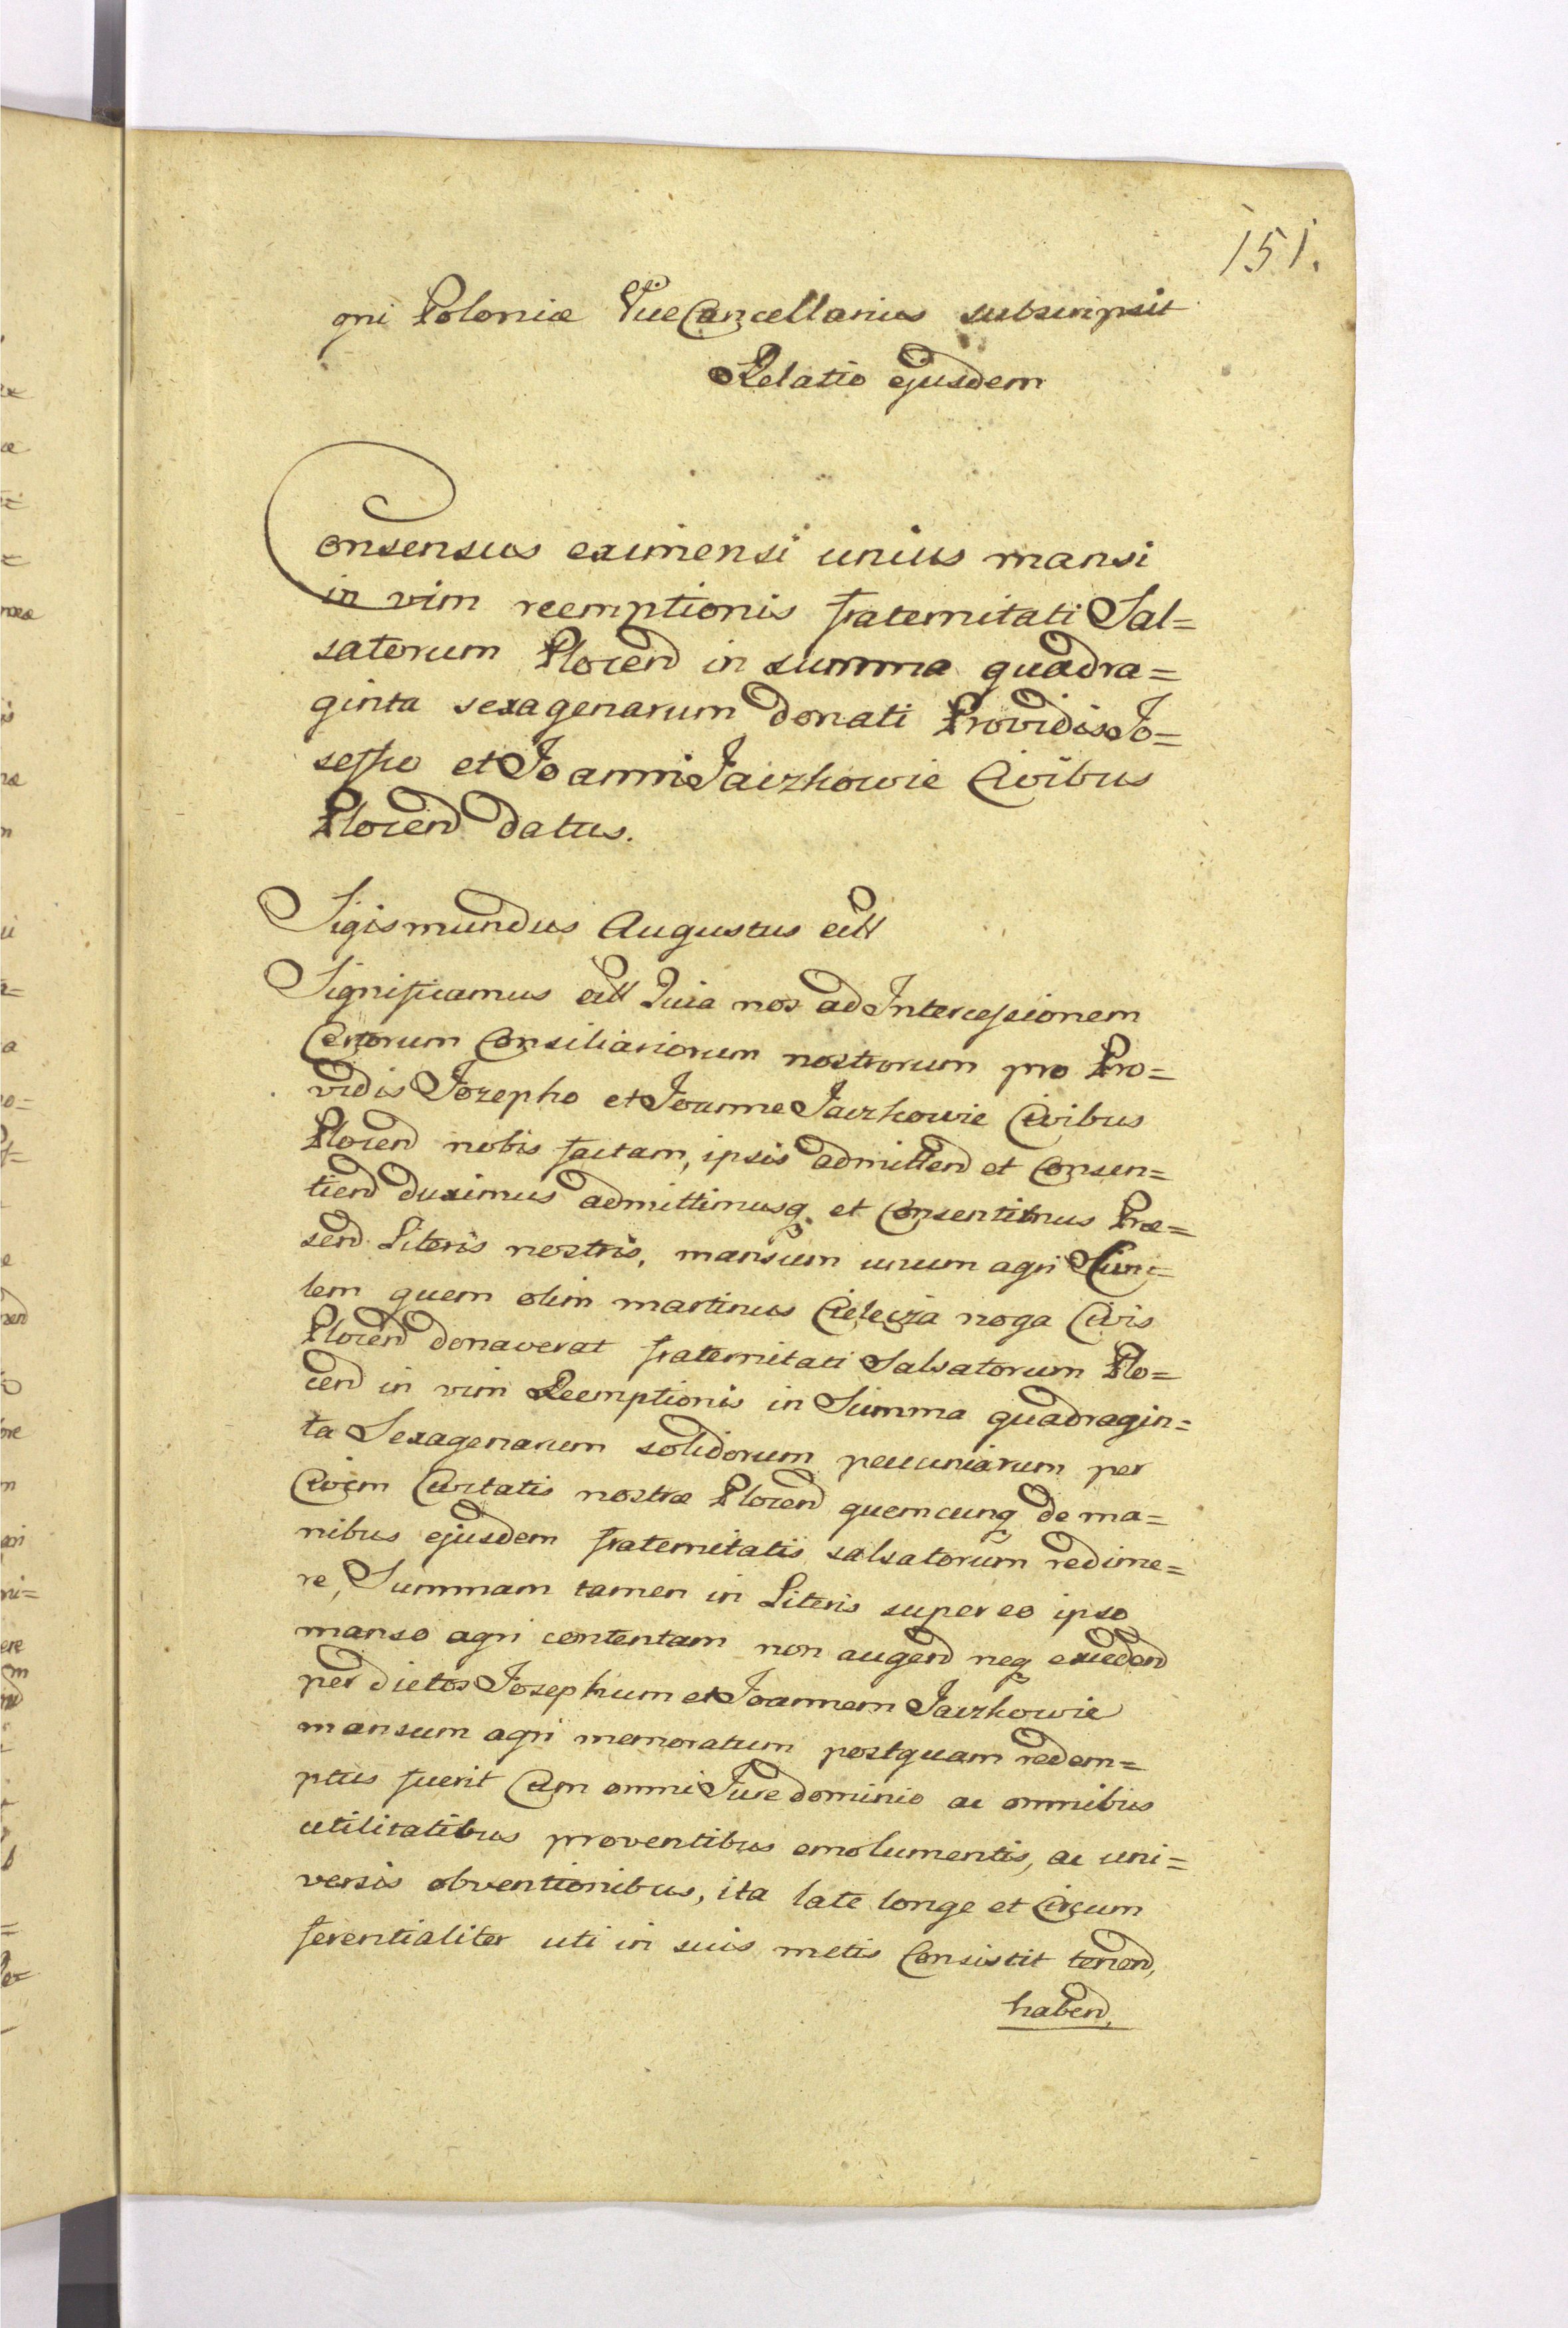 151.
gni Poloniæ ViceCancellarius subscripsit
Relatio ejusdem
Consensus eximensi unius mansi
in vim reemptionis fraternitati Sal=
satorum Plocen̄ in summa quadra=
ginta sexagenarum donati Providis Jo=
sepho et Joanni Jaczkowie Civibus
Plocen̄ datus.
Sigismundus Augustus ett
Significamus ett Quia nos ad Intercessionem
Certorum Consiliariorum nostrorum pro Pro=
vidis Jozepho et Joanne Jaczkowie Civibus
Plocen̄ nobis factam, ipsis admitten̄ et Consen=
tien̄ duximus admittimusq et Consentimus Præ=
sen̄ Literis nostris, mansum unum agri
lem quem olim martinus Cielecza noga Civis
Plocen̄ donaverat fraternitati Salsatorum Plo=
cen̄ in vim Reemptionis in Summa quadragin=
ta Sexagenarum solidorum pecuniarum per
Civem Civitatis nostræ Plocen̄ quemcunq de ma=
nibus ejusdem fraternitatis salsatorum redime=
re, Summam tamen in Literis super eo ipso
manso agri contentam non augen̄ neq exceden̄
per dictos Josephum et Joannem Jaczkowie
mansum agri memoratum postquam redem=
ptus fuerit Cum omni Jure dominio ac omnibus
utilitatibus proventibus emolumentis, ac uni=
versis obventionibus, ita late longe et Circum
ferentialiter uti in suis metis Consistit tenen̄,
haben̄,